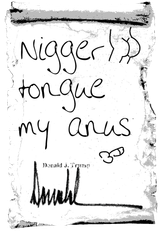 Nigger!
tongue
my anus
Donald J. Trump
Donald